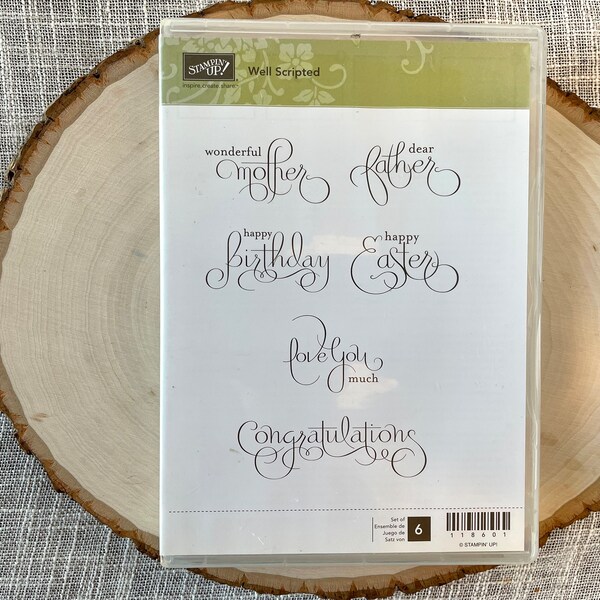 STAMPIN' UP!
inspire.create.share.™
Well Scripted
wonderful
mother
dear
father
happy
birthday
happy
Easter
love you
much
Congratulations
Set of
Ensemble de
Juego de
Satz von
6
118601
© STAMPIN' UP!